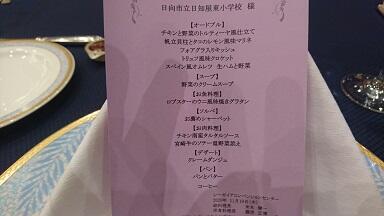 日向市立日知屋東小学校 様
【オードブル】
チキンと野菜のトルティーヤ風仕立て
帆立貝柱とタコのレモン風味マリネ
フォアグラ入りキッシュ
トリュフ風味クロケット
スペイン風オムレツ 生ハムと野菜
【スープ】
野菜のクリームスープ
【お魚料理】
ロブスターのウニ風味焼きグラタン
【ソルベ】
お薦めシャーベット
【お肉料理】
チキン南蛮タルタルソース
宮崎牛のソテー温野菜添え
【デザート】
クレームダンジュ
【パン】
パンとバター
コーヒー
シーガイアコンベンションセンター
2020年 11月19日(木)